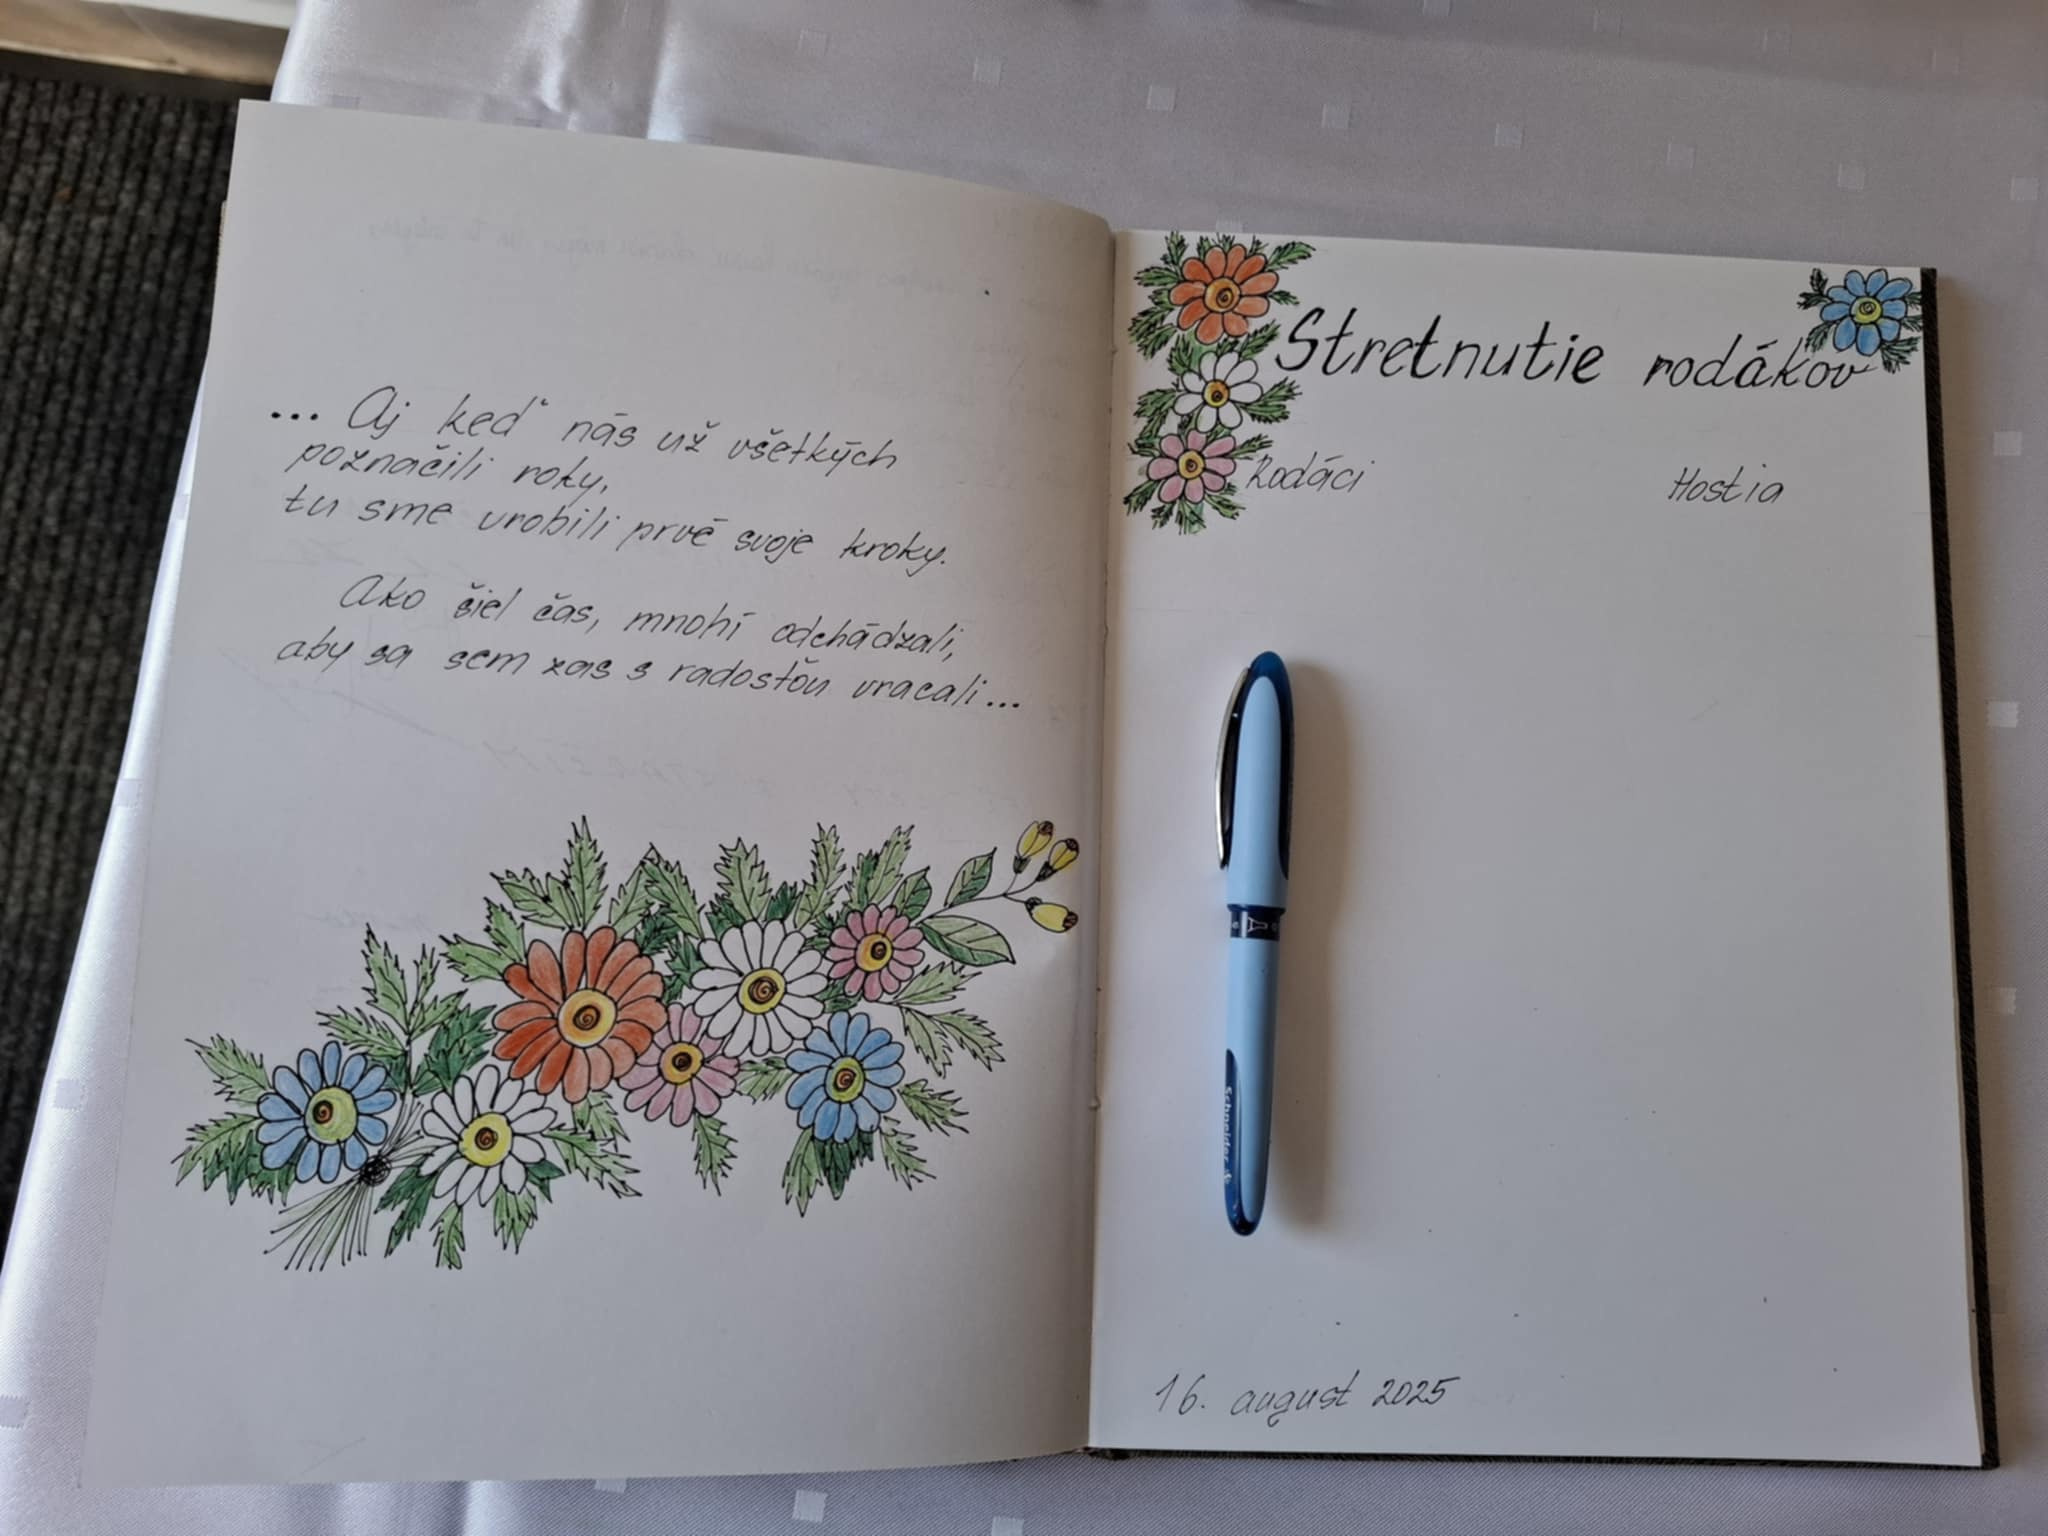 ... Aj keď nás už všetkých
poznačili roky,
tu sme urobili prvé svoje kroky.
Ako šiel čas, mnohí odchádzali,
aby sa sem zas s radosťou vracali...
Stretnutie rodákov
Rodáci
Hostia
Schneider
16. august 2025